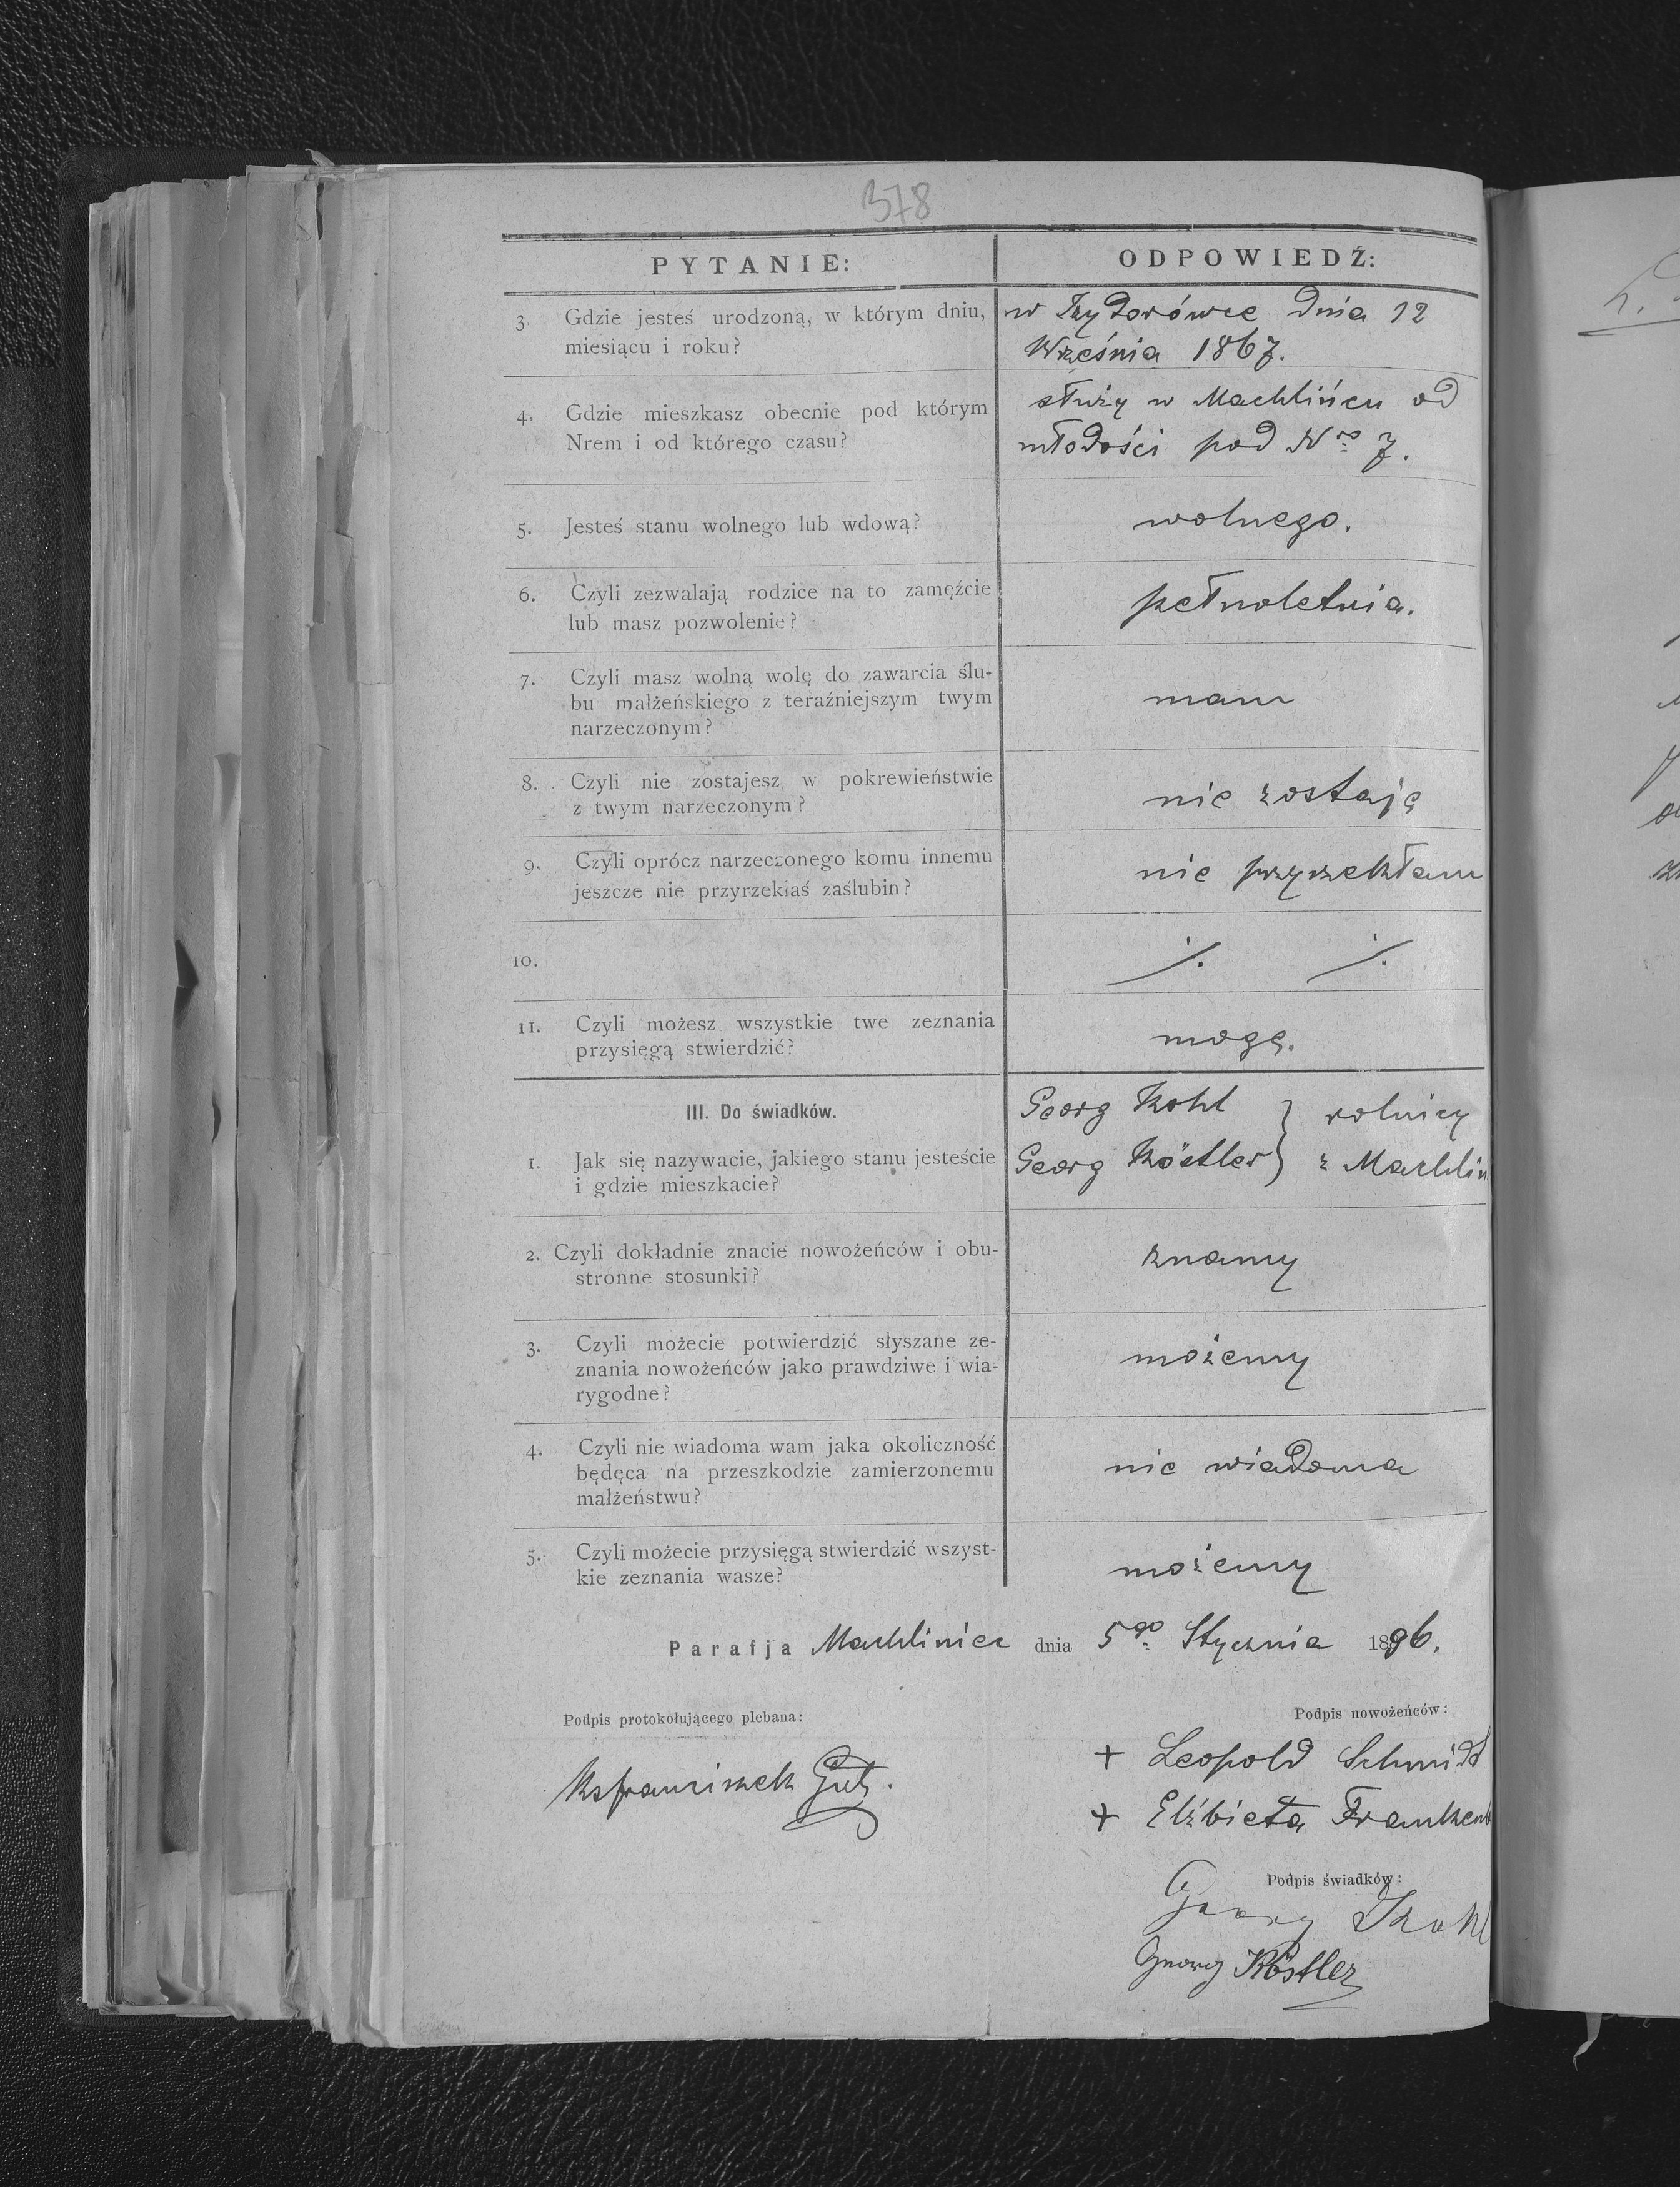 378
PYTANIE: ODPOWIEDŹ:
3. Gdzie jesteś urodzoną, w którym dniu, w Izydorówce dnia 12
miesiącu i roku? Września 1867.
4. Gdzie mieszkasz obecnie pod którym służy w Machlińcu od
Nrem i od którego czasu? młodości pod Nro 7.
5. Jesteś stanu wolnego lub wdową? wolnego.
6. Czyli zezwalają rodzice na to zamęźcie pełnoletnia.
lub masz pozwolenie?
7. Czyli masz wolną wolę do zawarcia ślu-
bu małżeńskiego z teraźniejszym twym mam
narzeczonym?
8. Czyli nie zostajesz w pokrewieństwie nie zostaję
z twym narzeczonym?
9. Czyli oprócz narzeczonego komu innemu nie przyrzekłam
jeszcze nie przyrzekłaś zaślubin?
10. ·/. ·/.
11. Czyli możesz wszystkie twe zeznania mogę.
przysięgą stwierdzić?
III. Do świadków. Georg Kohl } rolnicy
1. Jak się nazywacie, jakiego stanu jesteście Georg Köstler } z Machlin
i gdzie mieszkacie?
2. Czyli dokładnie znacie nowożeńców i obu- znamy
stronne stosunki?
3. Czyli możecie potwierdzić słyszane ze- możemy
znania nowożeńców jako prawdziwe i wia-
rygodne?
4. Czyli nie wiadoma wam jaka okoliczność
będęca na przeszkodzie zamierzonemu nie wiadoma
małżeństwu?
5. Czyli możecie przysięgą stwierdzić wszyst- możemy
kie zeznania wasze?
Parafja Machliniec dnia 5go Stycznia 1896.
Podpis protokołującego plebana: Podpis nowożeńców:
+ Leopold Schmidt
Ks franciszek
+ Elżbieta Frankenb
Podpis świadków:
Georg Kohl
Georg Köstler